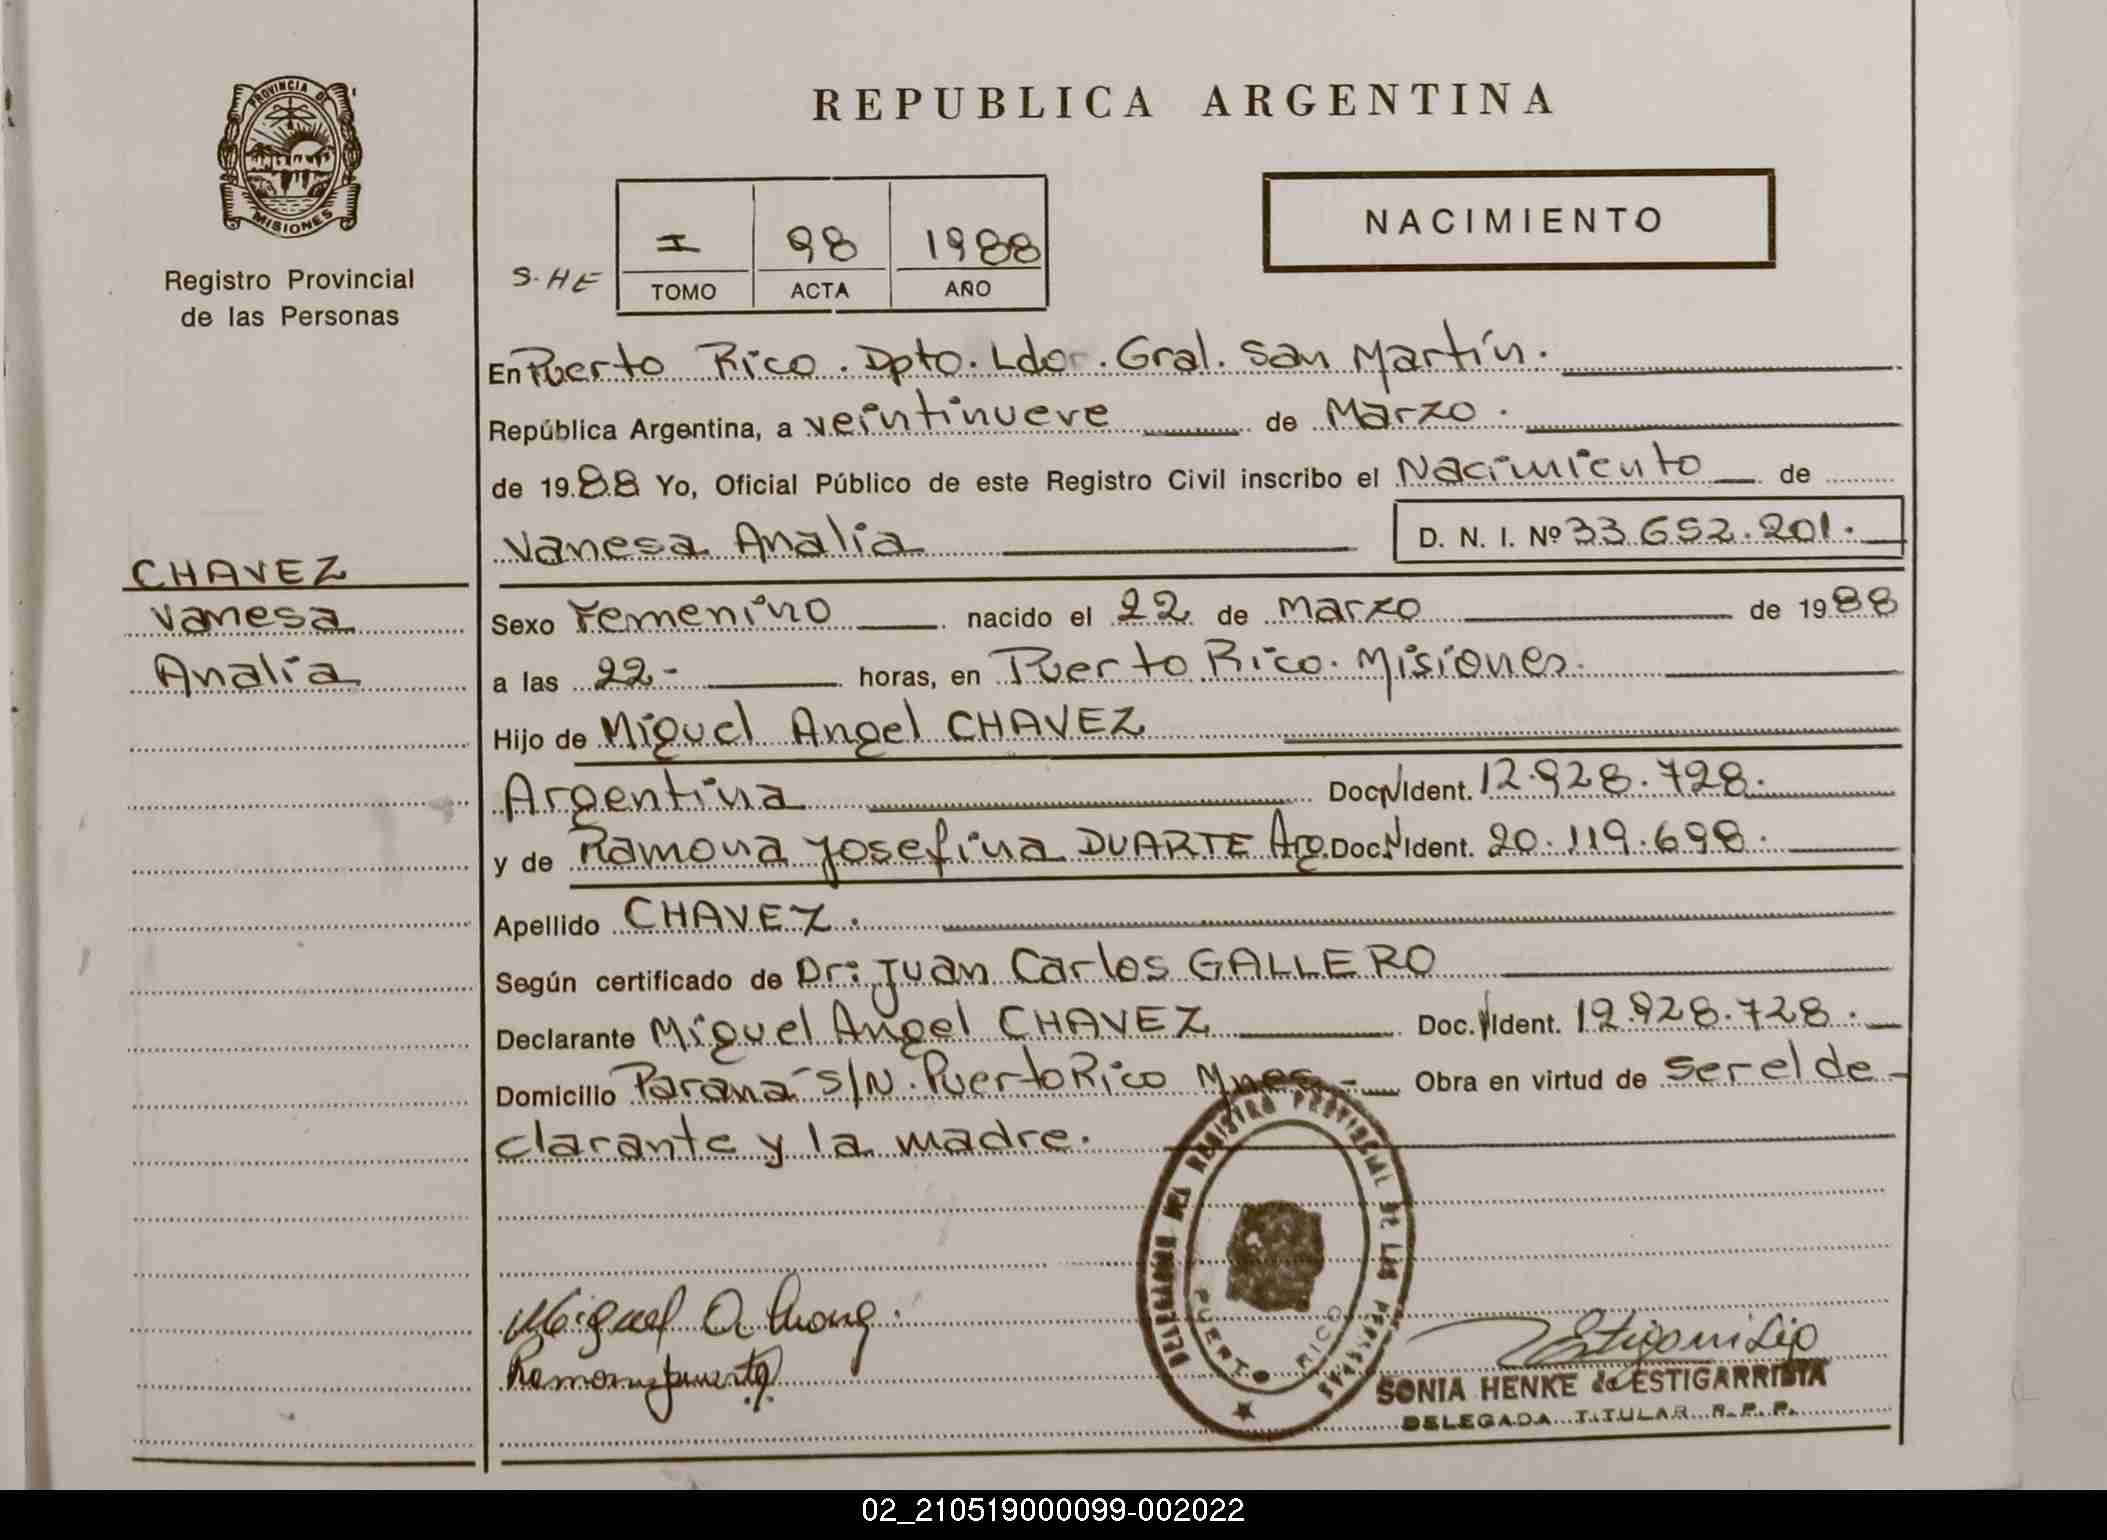 REPUBLICA ARGENTINA
PROVINCIA DE
MISIONES
Registro Provincial
de las Personas
NACIMIENTO
S.HE
I 98 1988
TOMO ACTA AÑO
En Puerto Rico. Dpto. Ldor. Gral. San Martín.
República Argentina, a veintinueve de Marzo.
de 1988 Yo, Oficial Público de este Registro Civil inscribo el Nacimiento de
Vanesa Analía D. N. I. Nº 33.652.201.
CHAVEZ
Vanesa
Analía
Sexo Femenino nacido el 22 de marzo de 1988
a las 22- horas, en Puerto Rico. Misiones.
Hijo de Miguel Angel CHAVEZ
Argentina Doc. N Ident. 12.928.728.
y de Ramona Josefina DUARTE Arg. Doc. N Ident. 20.119.698.
Apellido CHAVEZ.
Según certificado de Dr: Juan Carlos GALLERO
Declarante Miguel Angel CHAVEZ Doc. N Ident. 12.928.728.
Domicilio Paraná S/N. Puerto Rico Mnes- Obra en virtud de ser el de-
clarante y la madre.
DELEGACION DEL REGISTRO PROVINCIAL DE LAS PERSONAS
PUERTO RICO
SONIA HENKE de ESTIGARRIBIA
DELEGADA TITULAR R.P.P.
02_210519000099-002022